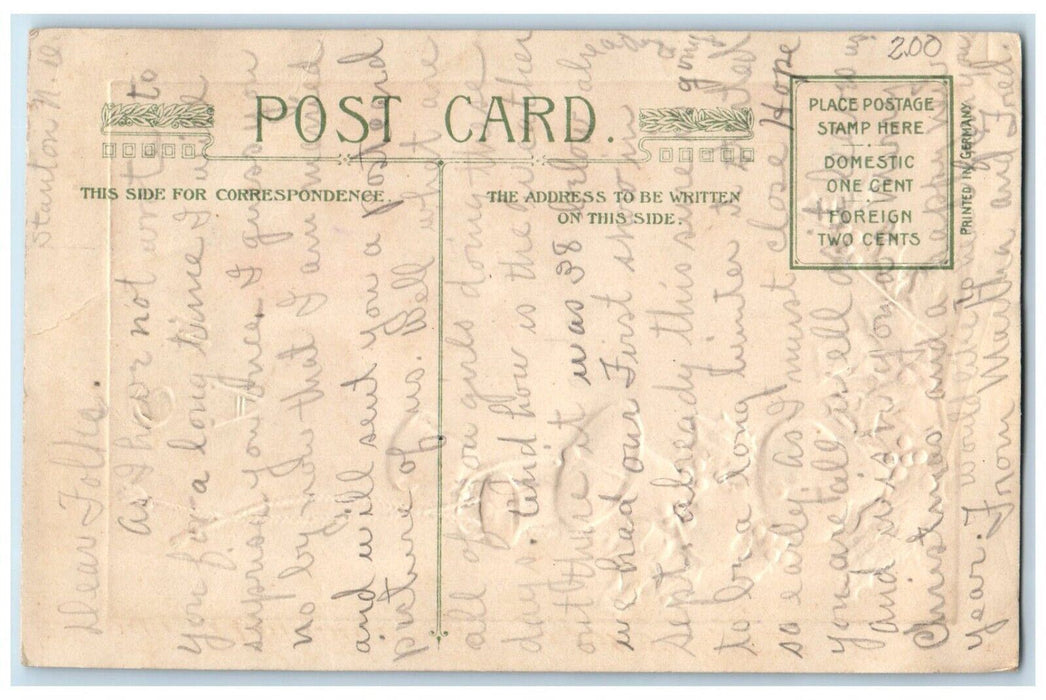 2.00
POST CARD.
THIS SIDE FOR CORRESPONDENCE.
THE ADDRESS TO BE WRITTEN
ON THIS SIDE.
PLACE POSTAGE
STAMP HERE
DOMESTIC
ONE CENT
FOREIGN
TWO CENTS
PRINTED IN GERMANY
Stanton N. D.
Dear Folks
as I have not wort to
you for a long time I will
suprise you once, I guess you
no by now that I am married
and will sent you a post card
picture of us. Well what are
all of you girls doing these
days. and how is the weather
out there it was 38 below
we had our First snow in
Sept. already this is going
to be a long winter to
so early as I must close Hope
you are all well
and wish you a merry
Christmas and a happy new
year. From Martha and Fred.